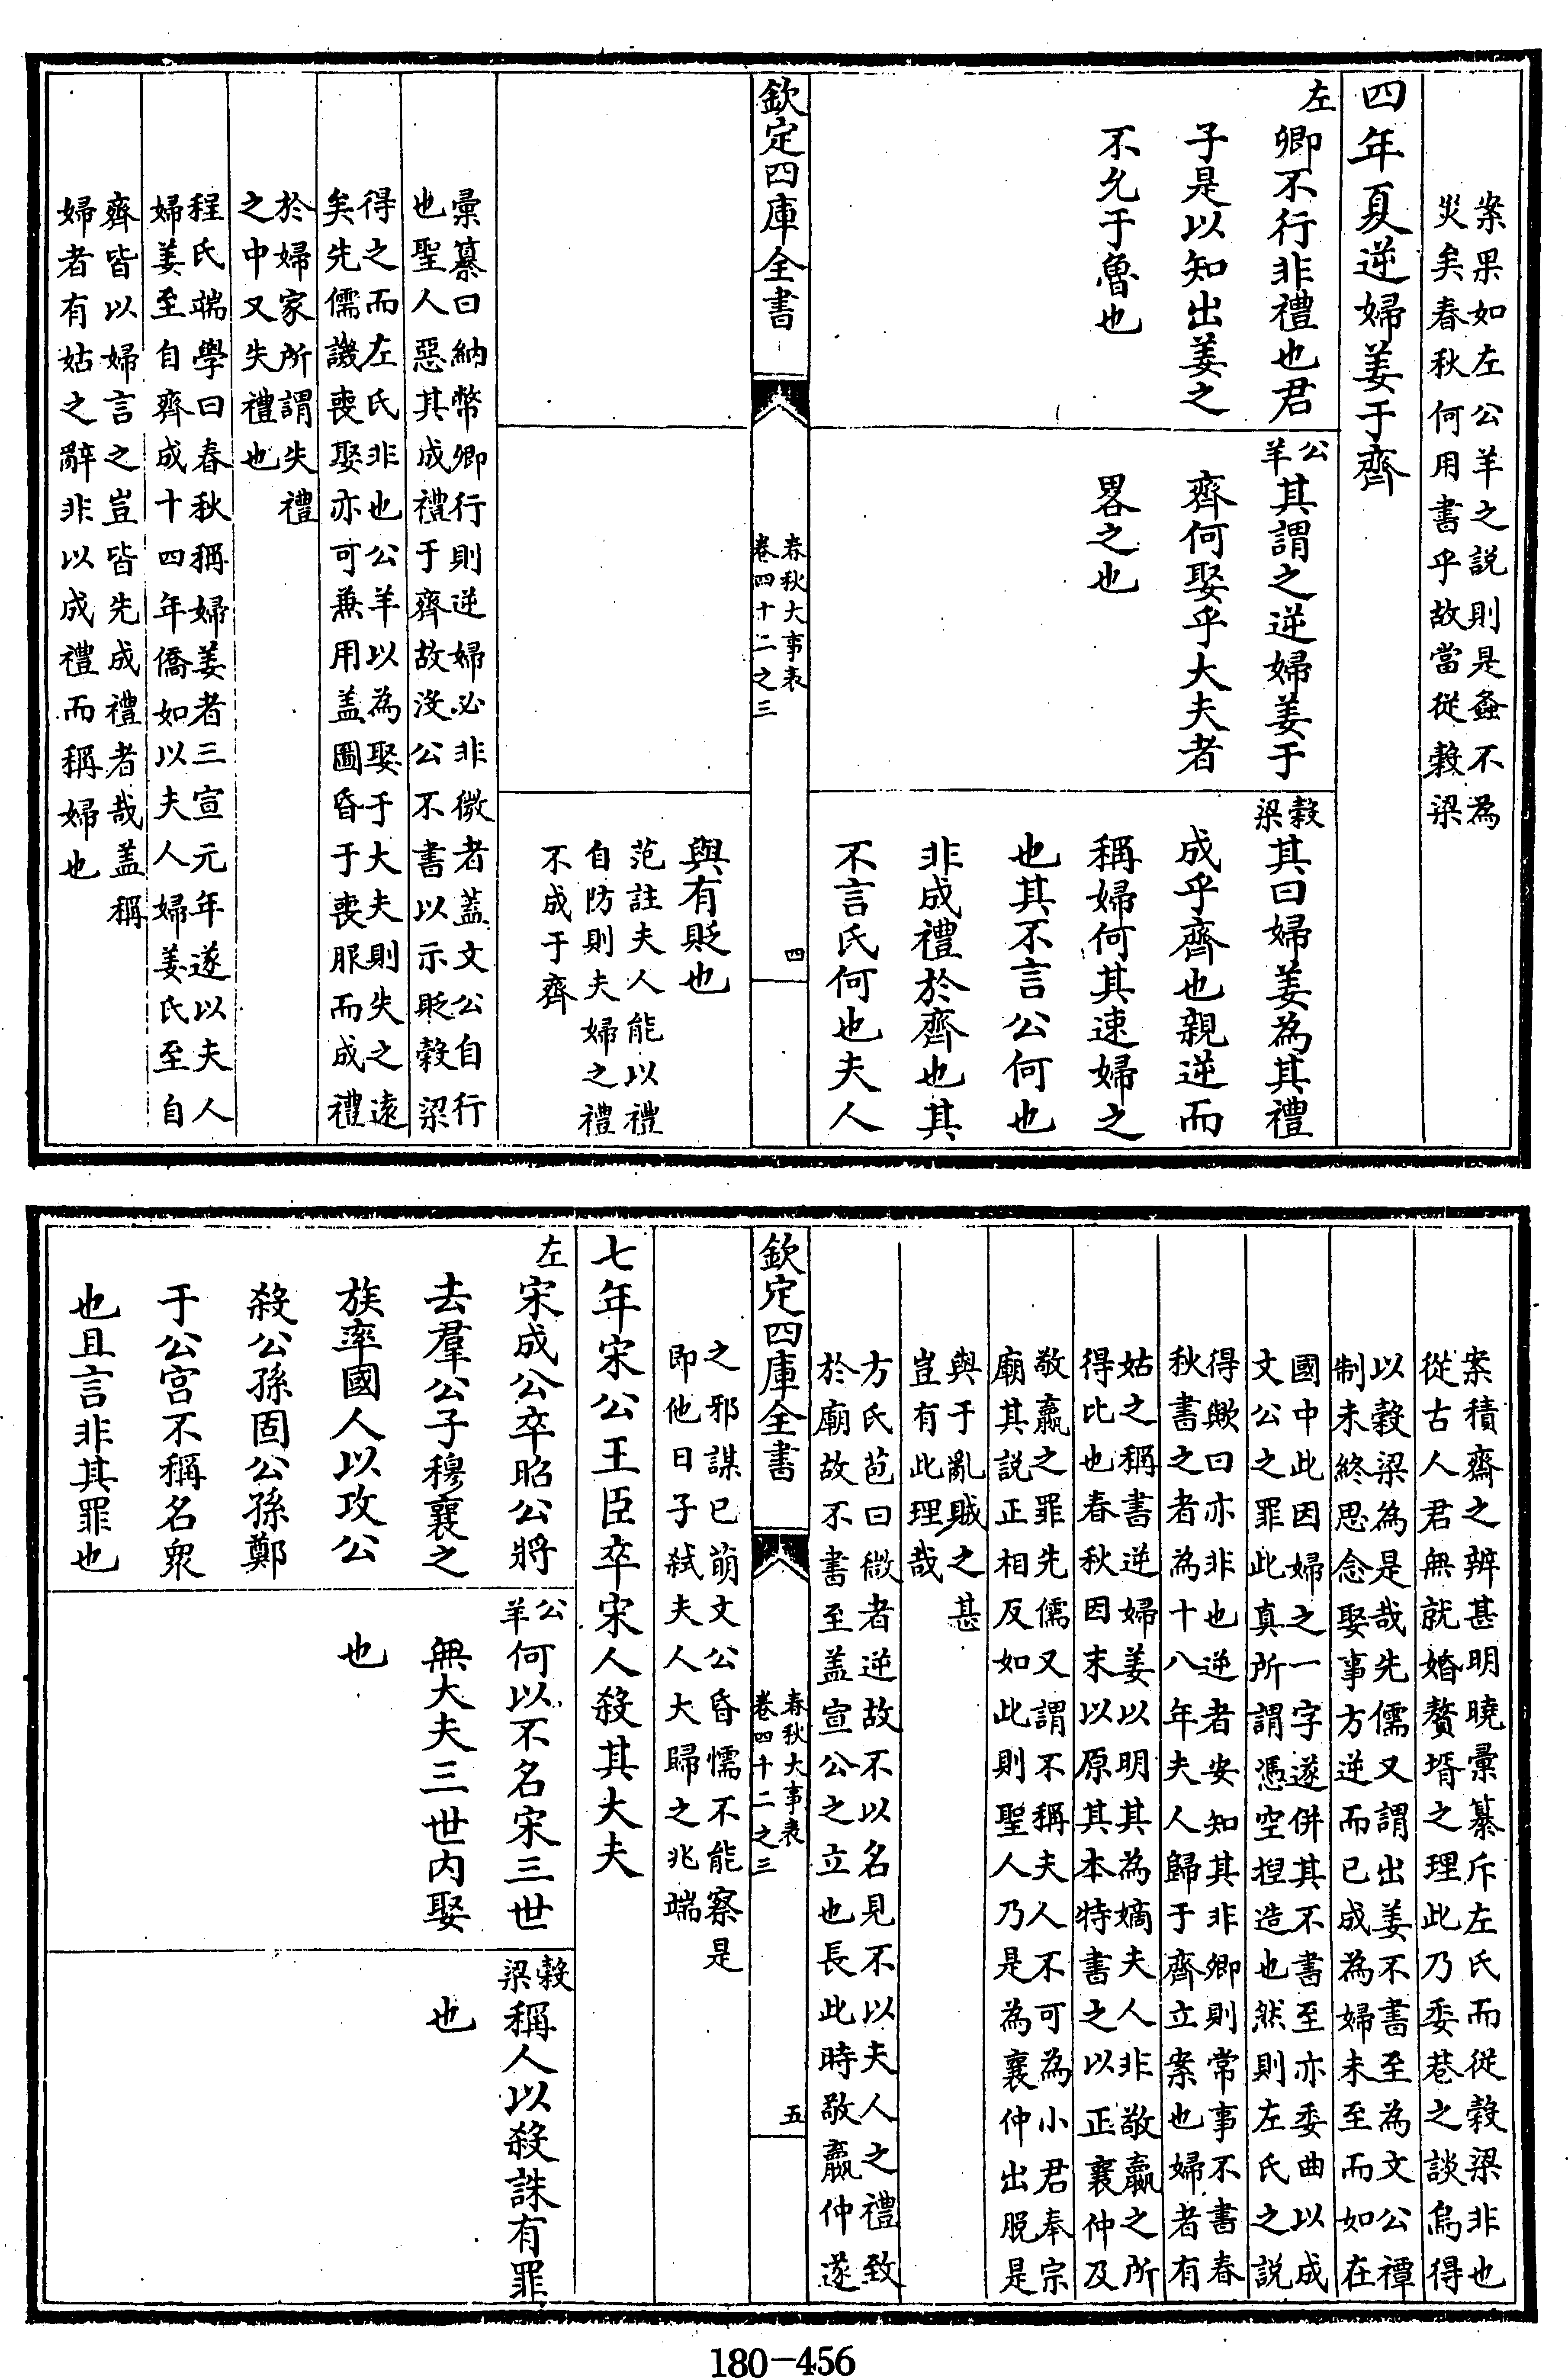 案果如左公羊之説則是螽不為
災矣春秋何用書乎故當從穀梁
四年夏逆婦姜于齊
左
卿不行非禮也君
子是以知出姜之
不允于魯也
公羊
其謂之逆婦姜于
齊何娶乎大夫者
畧之也
穀梁
其曰婦姜為其禮
成乎齊也親逆而
稱婦何其速婦之
也其不言公何也
非成禮於齊也其
不言氏何也夫人
欽定四庫全書
春秋大事表
卷四十二之三
四
與有貶也
范註夫人能以禮
自防則夫婦之禮
不成于齊
彚纂曰納幣卿行則逆婦必非微者葢文公自行
也聖人惡其成禮于齊故沒公不書以示貶穀梁
得之而左氏非也公羊以為娶于大夫則失之逺
矣先儒譏喪娶亦可兼用盖圖昏于喪服而成禮
於婦家所謂失禮
之中又失禮也
程氏端學曰春秋稱婦姜者三宣元年遂以夫人
婦姜至自齊成十四年僑如以夫人婦姜氏至自
齊皆以婦言之豈皆先成禮者哉盖稱
婦者有姑之辭非以成禮而稱婦也
案積齋之辨甚明曉彚纂斥左氏而從穀梁非也
從古人君無就婚贅壻之理此乃委巷之談烏得
以穀梁為是哉先儒又謂出姜不書至為文公禫
制未終思念娶事方逆而已成為婦未至而如在
國中此因婦之一字遂併其不書至亦委曲以成
文公之罪此真所謂憑空揑造也然則左氏之説
得歟曰亦非也逆者安知其非卿則常事不書春
秋書之者為十八年夫人歸于齊立案也婦者有
姑之稱書逆婦姜以明其為嫡夫人非敬嬴之所
得比也春秋因末以原其本特書之以正襄仲及
敬嬴之罪先儒又謂不稱夫人不可為小君奉宗
廟其説正相反如此則聖人乃是為襄仲出脱是
與于亂賊之甚
豈有此理哉
方氏苞曰微者逆故不以名見不以夫人之禮致
於廟故不書至盖宣公之立也長此時敬嬴仲遂
欽定四庫全書
春秋大事表
卷四十二之三
五
之邪謀已萌文公昏懦不能察是
即他日子弑夫人大歸之兆端
七年宋公王臣卒宋人殺其大夫
左
宋成公卒昭公將
去羣公子穆襄之
族率國人以攻公
殺公孫固公孫鄭
于公宮不稱名衆
也且言非其罪也
公羊
何以不名宋三世
無大夫三世内娶
也
穀梁
稱人以殺誅有罪
也
180-456